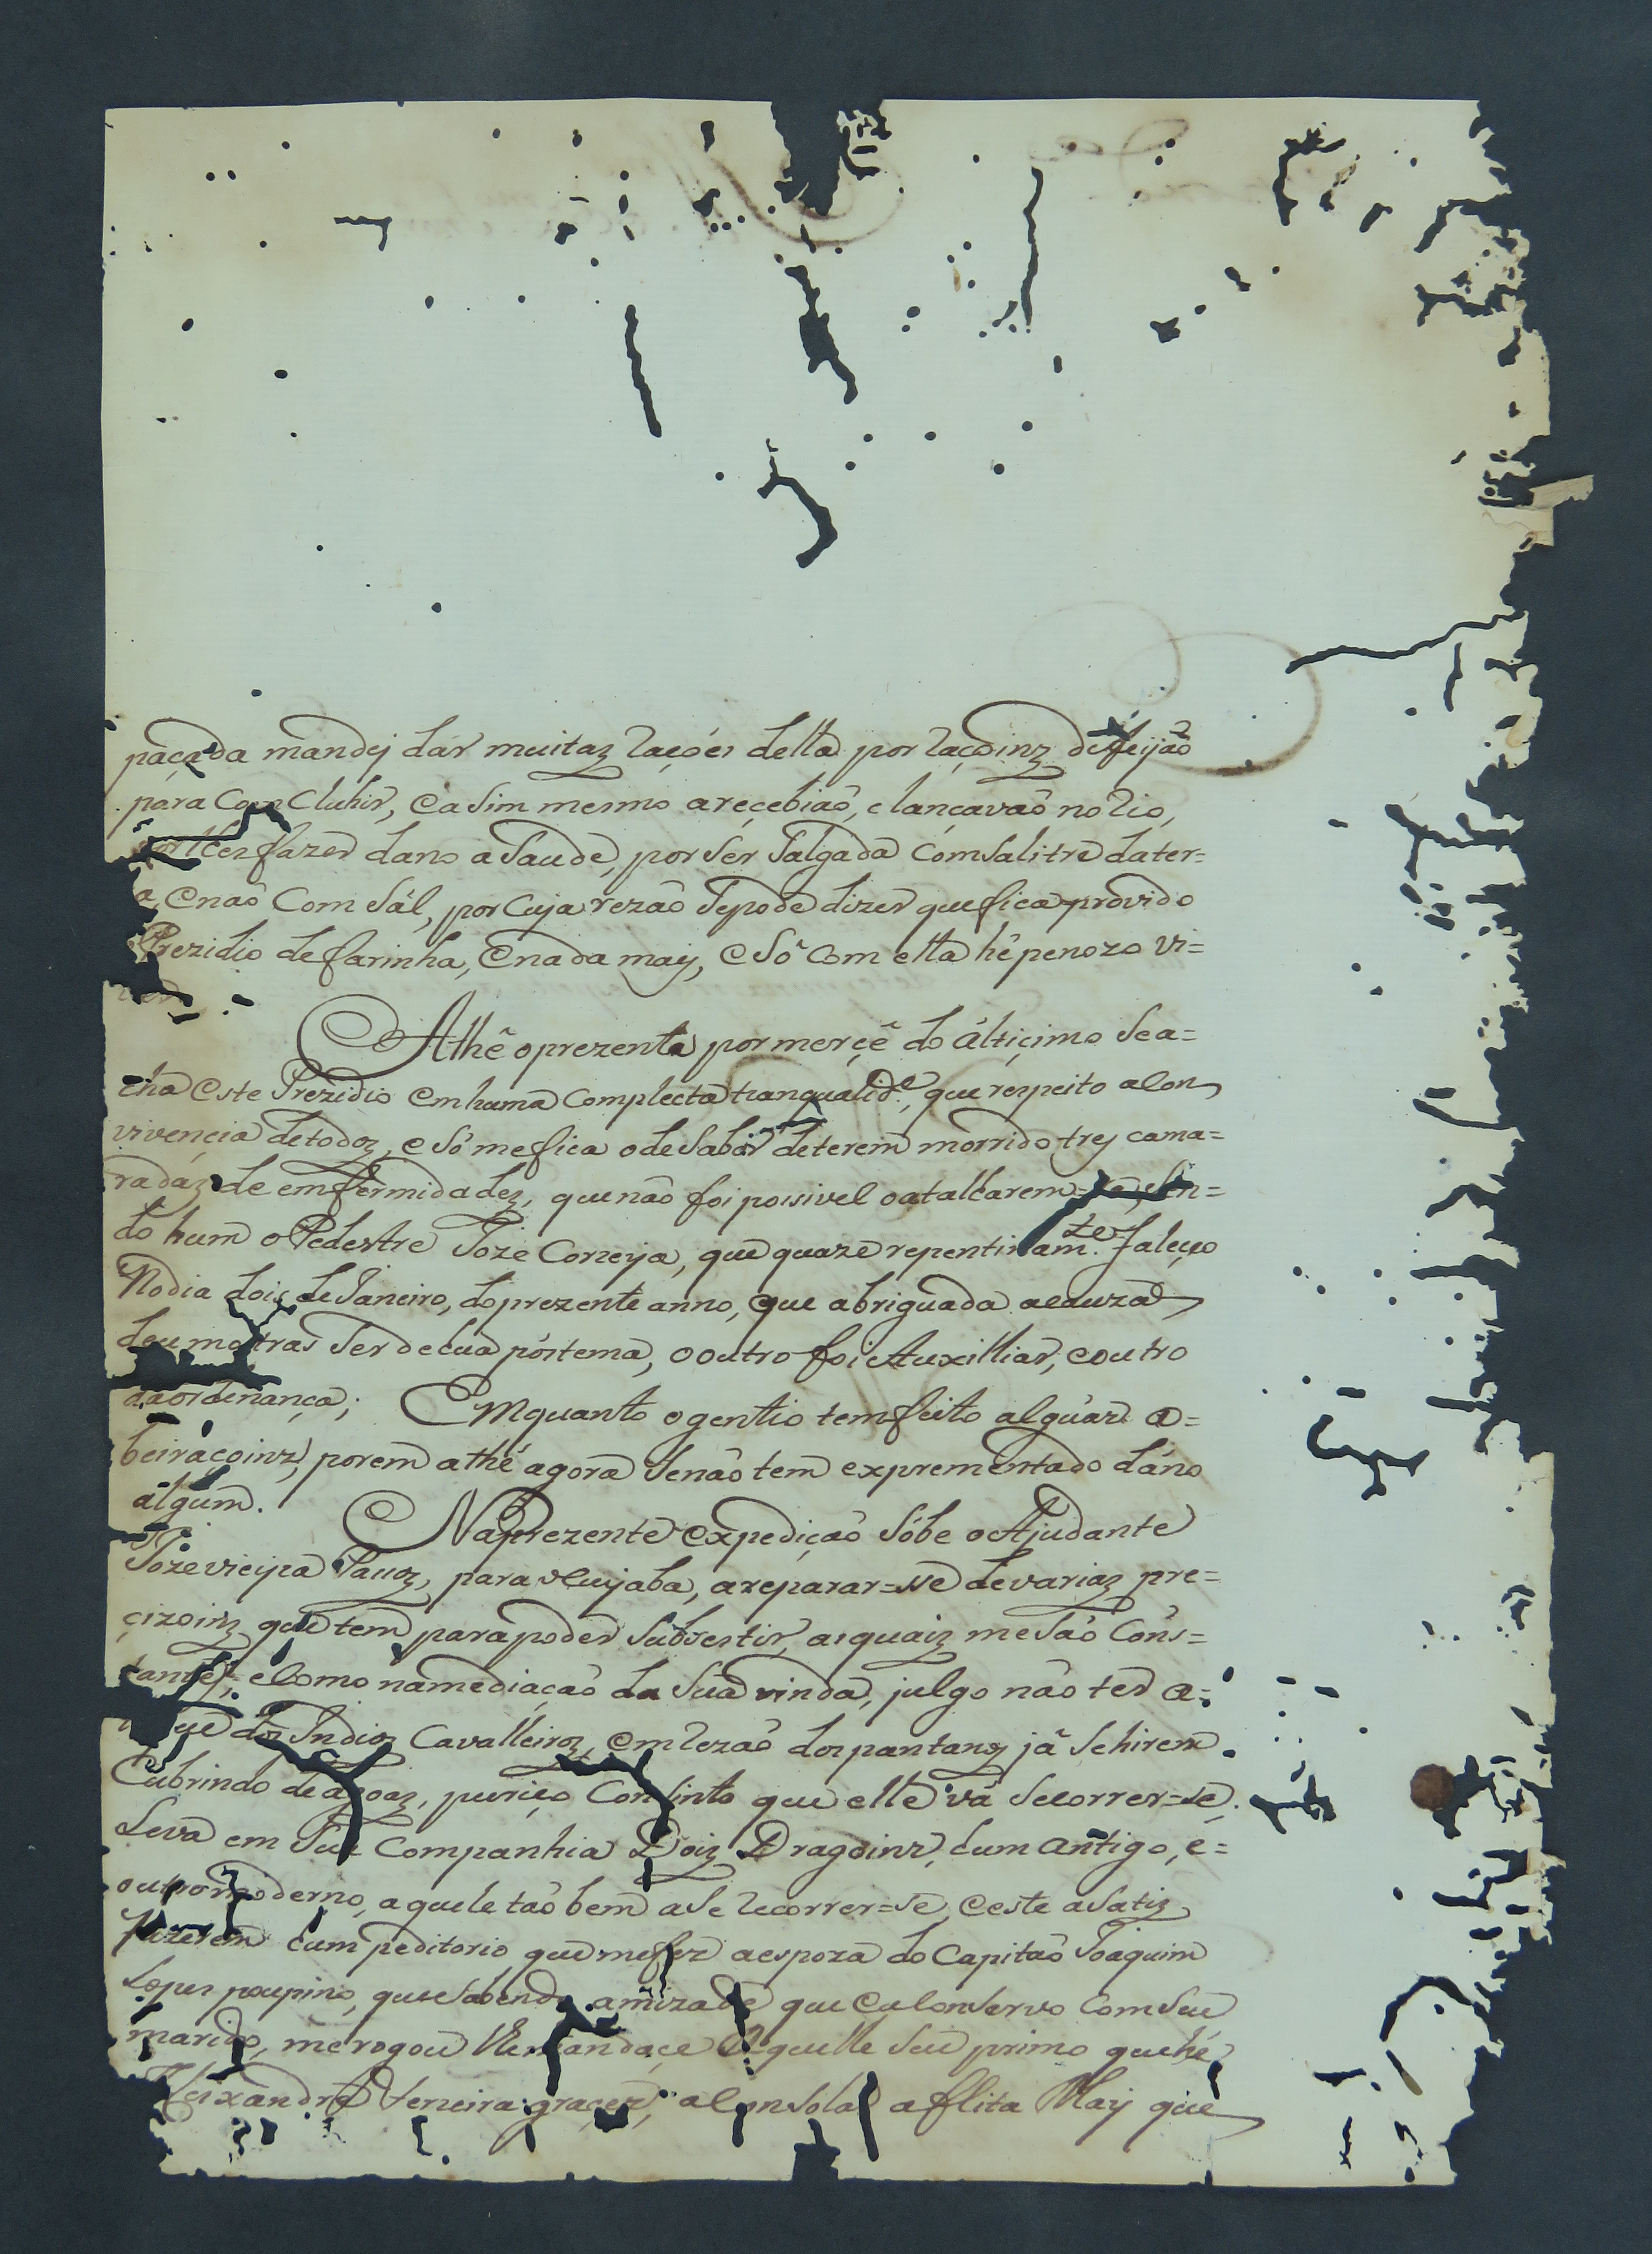 paçada mandej dár muitaz raçóes della por raçoinz de feijaõ
para Com Cluhir, e a Sim mesmo a reçebiaõ, e lançavaõ no rio,
por lhes fazer dano a Saude, por Ser Salgada Com Salitre da ter=
a, e naõ Com Sál, por Cuja rezaõ Se pode dizer que fica provido
Prezidio de farinha, e nada maiz, e Sô Com ella hê penozo vi=
ver.
Athê o prezente por merçê do Altiçimo Se a=
cha este Prezidio em huma Complecta tranqualid.e, que respeito a Con
vivençia de todoz, e Sô me fica o de Sabor de terem morrido trez cama=
radáz de emfermidadez, que naõ foi possivel o atalharem=se, Sen=
do hum o Pedestre Joze Correya, que quaze repentinam.te faleçeo
No dia dois de Janeiro, do prezente anno, que abriguada a cauza
deu mostras Ser de hua póstema, o outro foi Auxilliar, e outro
da ordenança; Emquanto o gentio tem feito alguãz a=
beiraçoinz, porem athé agora Se naõ tem exprementado dáno
algum. Na prezente expediçaõ Sóbe o Ajudante
Joze vieyra Paçoz, para o Cuyaba, a reparar=se de variaz pre=
çizoinz que tem para poder Subsestir, as quaiz me Saõ Cons=
tantes, e Como na mediaçaõ da Sua vinda, julgo naõ ter a=
dos Indioz Cavalleiroz, em rezaõ dos pantanoz já Se hirem
Cubrindo de agoaz, puriço Consinto que elle vá Secorrer=se.
Leva em Sua Companhia Doiz Dragoinz, hum antigo, e=
outro moderno, aquele taõ bem a Se recorrer=se, e este a Satiz
fazerem hum peditorio, que me fez a espoza do Capitaõ Joaquim
Lopes poupino, que Sabendo amizade que eu Conservo Com Seu
marido, me rogou lhe mandaçe Aquelle Seu primo que hé
Aleixandre Ferreira graçez, a Consolar a aflita May que